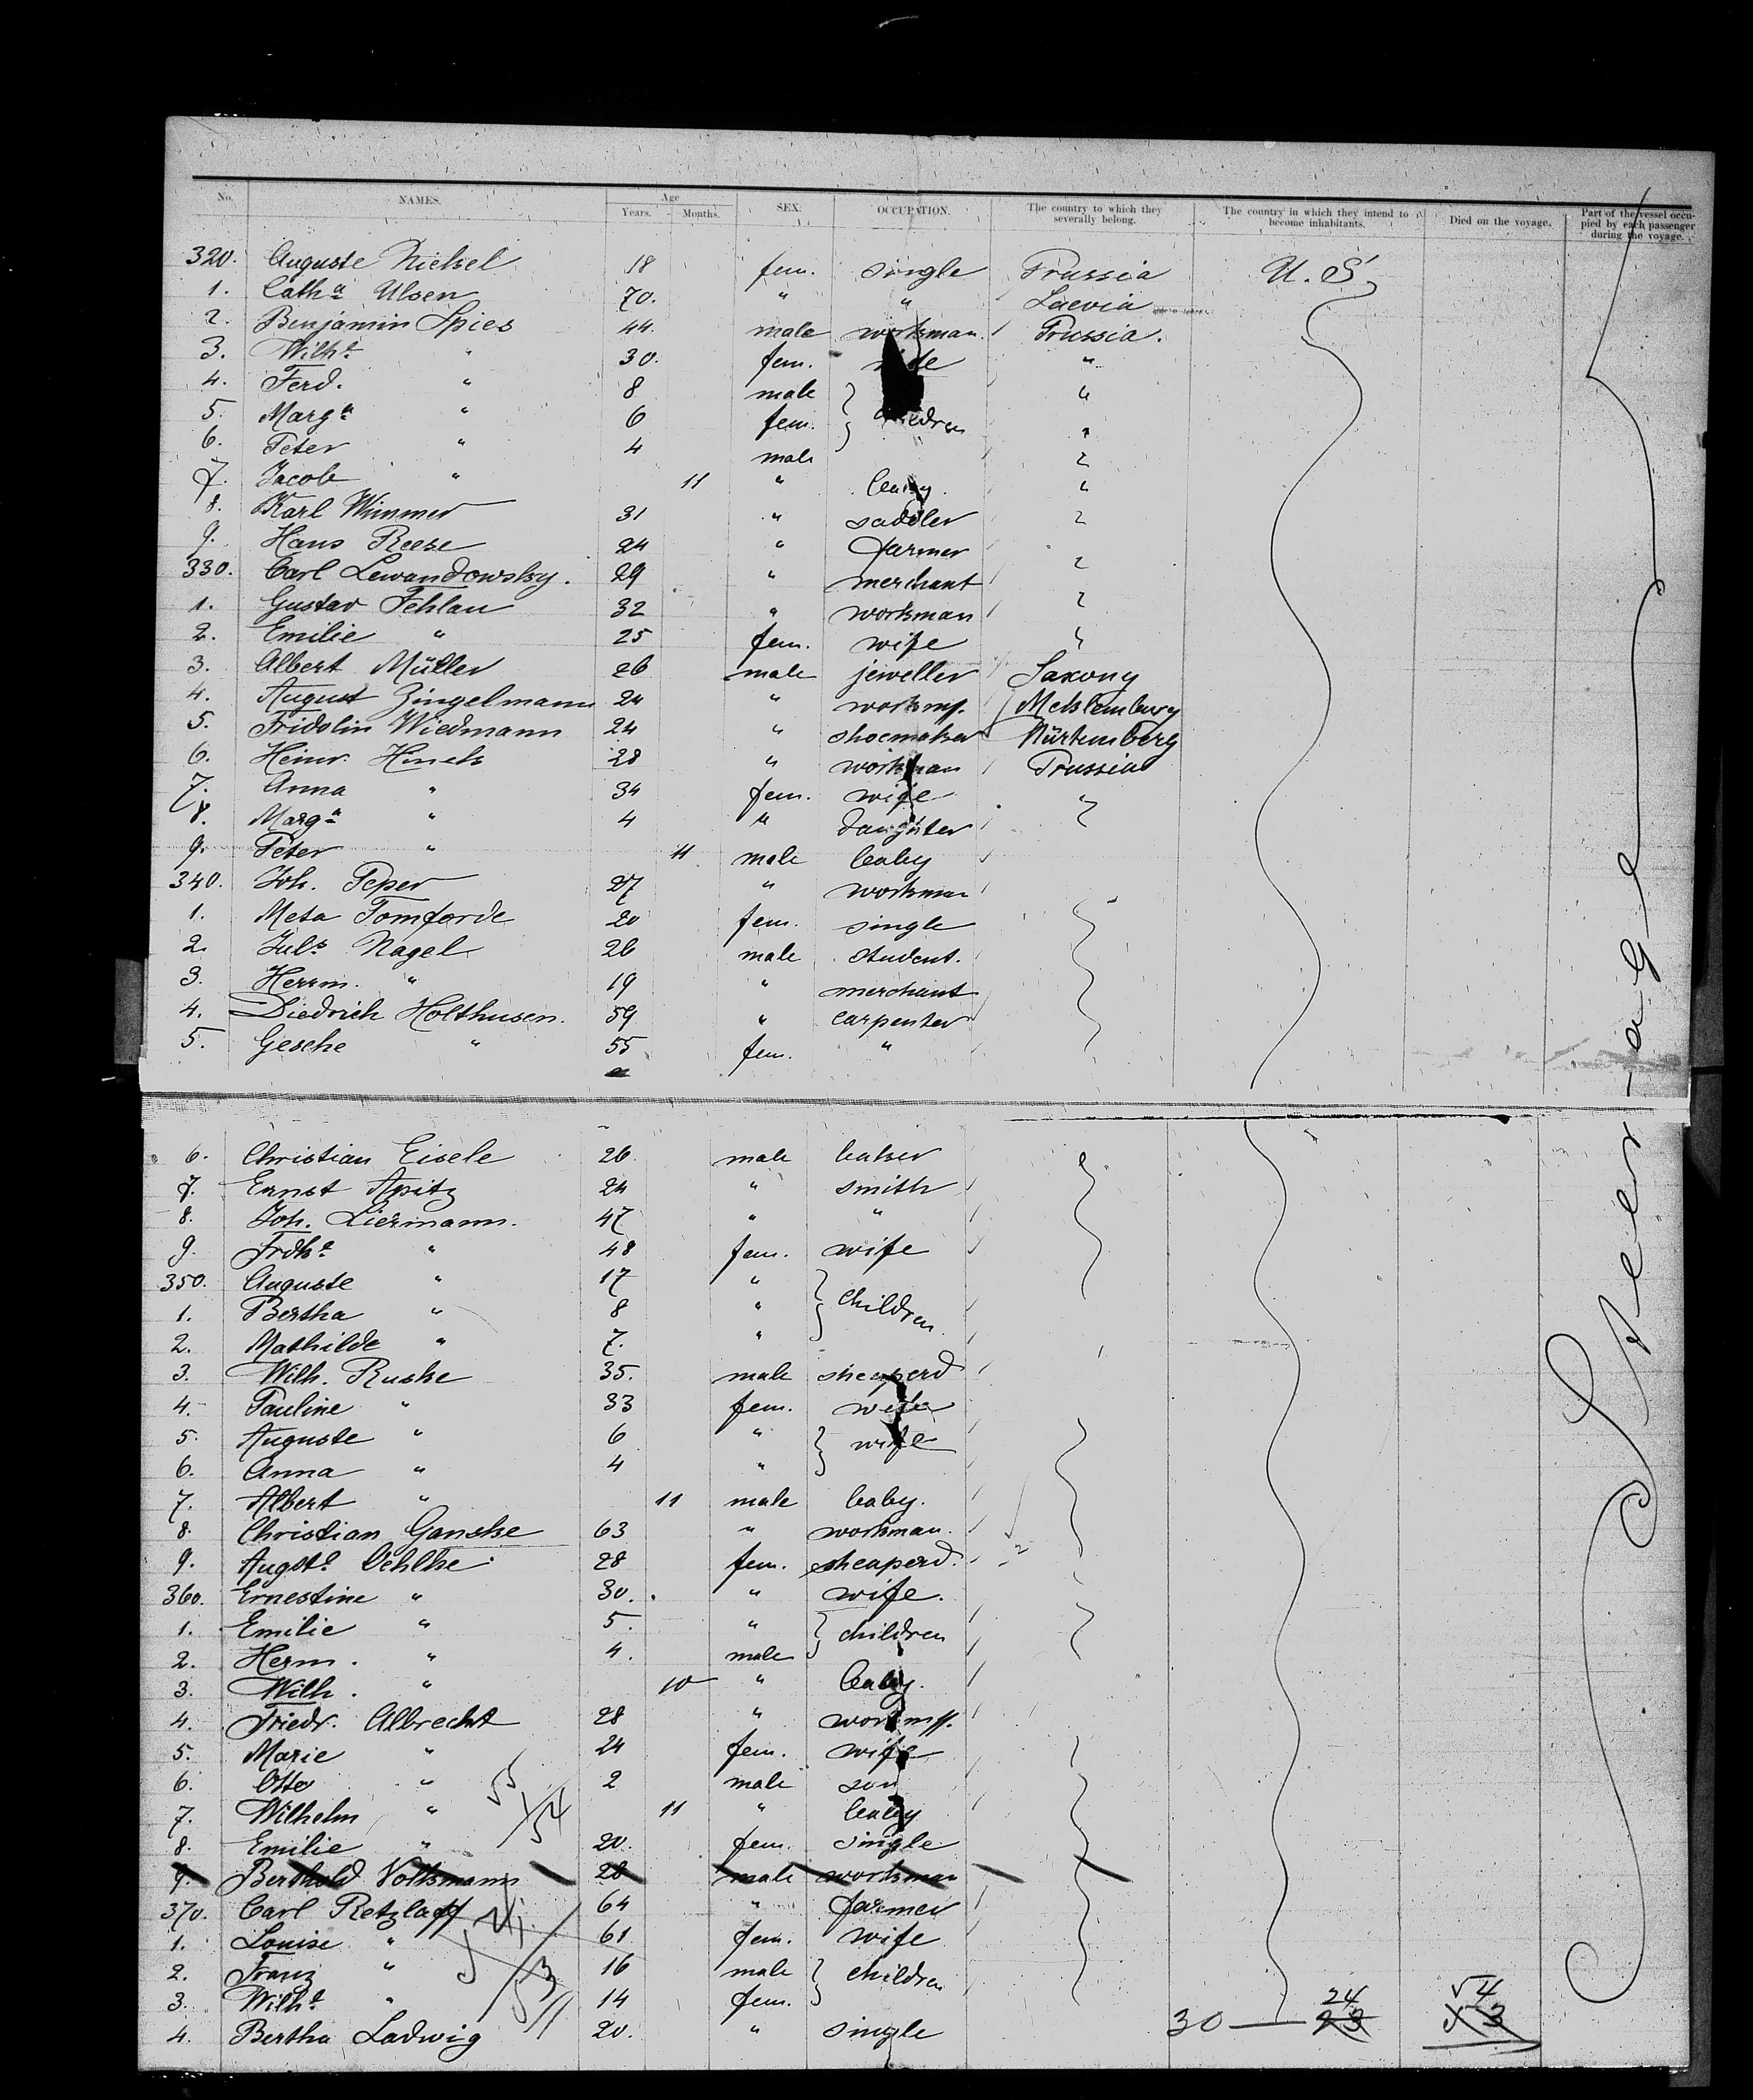 No. NAMES. Age Years. Months. SEX. OCCUPATION. The country to which they severally belong. The country in which they intend to become inhabitants. Died on the voyage. Part of the vessel occupied by each passenger during the voyage.
320. Auguste 18 fem. single Prussia U. S.
1. Cath.a Ulsen 70. " "
2. Benjamin Spies 44. male workman Prussia.
3. Wilh.e " 30. fem. wife "
4. Ferd. " 8 male "
5. Marg.a " 6 fem. children "
6. Peter " 4 male "
7. Jacob " 11 " baby. "
8. Karl Wimmer 31 " saddler "
9. Hans Reese 24 " farmer "
330. Carl Lewandowsky. 29 " merchant "
1. Gustav Fehlau 32 " workman "
2. Emilie " 25 fem. wife "
3. Albert Müller 26 male jeweller Saxony
4. August Zingelmann 24 " workm. Mecklemburg
5. Fridolin Wiedmann 24 " shoemaker Würtemberg
6. Heinr. Hinck 28 " workman Prussia
7. Anna " 34 fem. wife "
8. Marg.a " 4 " daughter
9. Peter " 11 male baby
340. Joh. Peper 27 " workman
1. Meta Tomforde 20 fem. single
2. Jul.s Nagel 26 male student.
3. Herrm. " 19 " merchant
4. Diedrich Holthusen. 59 " carpenter
5. Gesche " 55 fem. "
6. Christian Eisele 26. male baker
7. Ernst Apitz 24 " smith
8. Joh. Liermann. 47 " "
9. Frdk.e " 48 fem. wife
350. Auguste " 17 " children
1. Bertha " 8 "
2. Mathilde " 7. "
3. Wilh. Ruske 35. male sheaperd
4. Pauline " 33 fem. wife
5. Auguste " 6 " wife
6. Anna " 4 "
7. Albert " 11 male baby.
8. Christian Ganske 63 " workman.
9. Augst.e Oehlke 28 fem. sheaperd.
360. Ernestine " 30. " wife.
1. Emilie " 5. " children
2. Herm. " 4. male
3. Wilh. " 10 " baby.
4. Friedr. Albrecht 28 " workm.
5. Marie " 24 fem. wife
6. Otto " 2 male son
7. Wilhelm " 11 " baby
8. Emilie " 20. fem. single
9. Berthold Volkmann 28 male workman
370. Carl Retzlaff 64 " farmer
1. Louise " 61 fem. wife
2. Franz " 16 male children
3. Wilh.e " 14 fem.
4. Bertha Ladwig 20. " single
30 — 24 23 54 53
Steerage